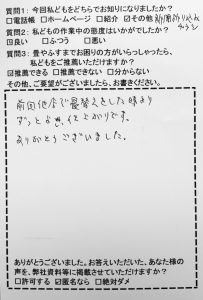 質問1：今回私どもをどちらでお知りになりましたか？
□電話帳 □ホームページ □紹介 ☑その他 新聞折り込みチラシ
質問2：私どもの作業中の態度はいかがでしたか？
☑良い □ふつう □悪い
質問3：畳やふすまでお困りの方がいらっしゃったら、
私どもをご推薦いただけますか？
☑推薦できる □推薦できない □分からない
その他、ご要望がございましたら、お書きください。
前回他店で畳替えをした時より
ずっと良き、仕上がりです。
ありがとうございました。
ありがとうございました。お答えいただいた、あなた様の
声を、弊社資料等に掲載させていただけますか？
□許可する ☑匿名なら □絶対ダメ